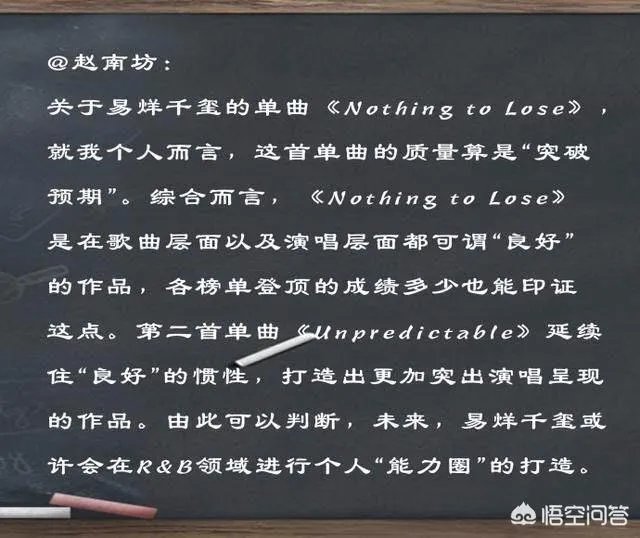 @赵南坊：
关于易烊千玺的单曲《Nothing to Lose》，
就我个人而言，这首单曲的质量算是“突破
预期”。综合而言，《Nothing to Lose》
是在歌曲层面以及演唱层面都可谓“良好”
的作品，各榜单登顶的成绩多少也能印证
这点。第二首单曲《Unpredictable》延续
住“良好”的惯性，打造出更加突出演唱呈现
的作品。由此可以判断，未来，易烊千玺或
许会在R&B领域进行个人“能力圈”的打造。
悟空问答